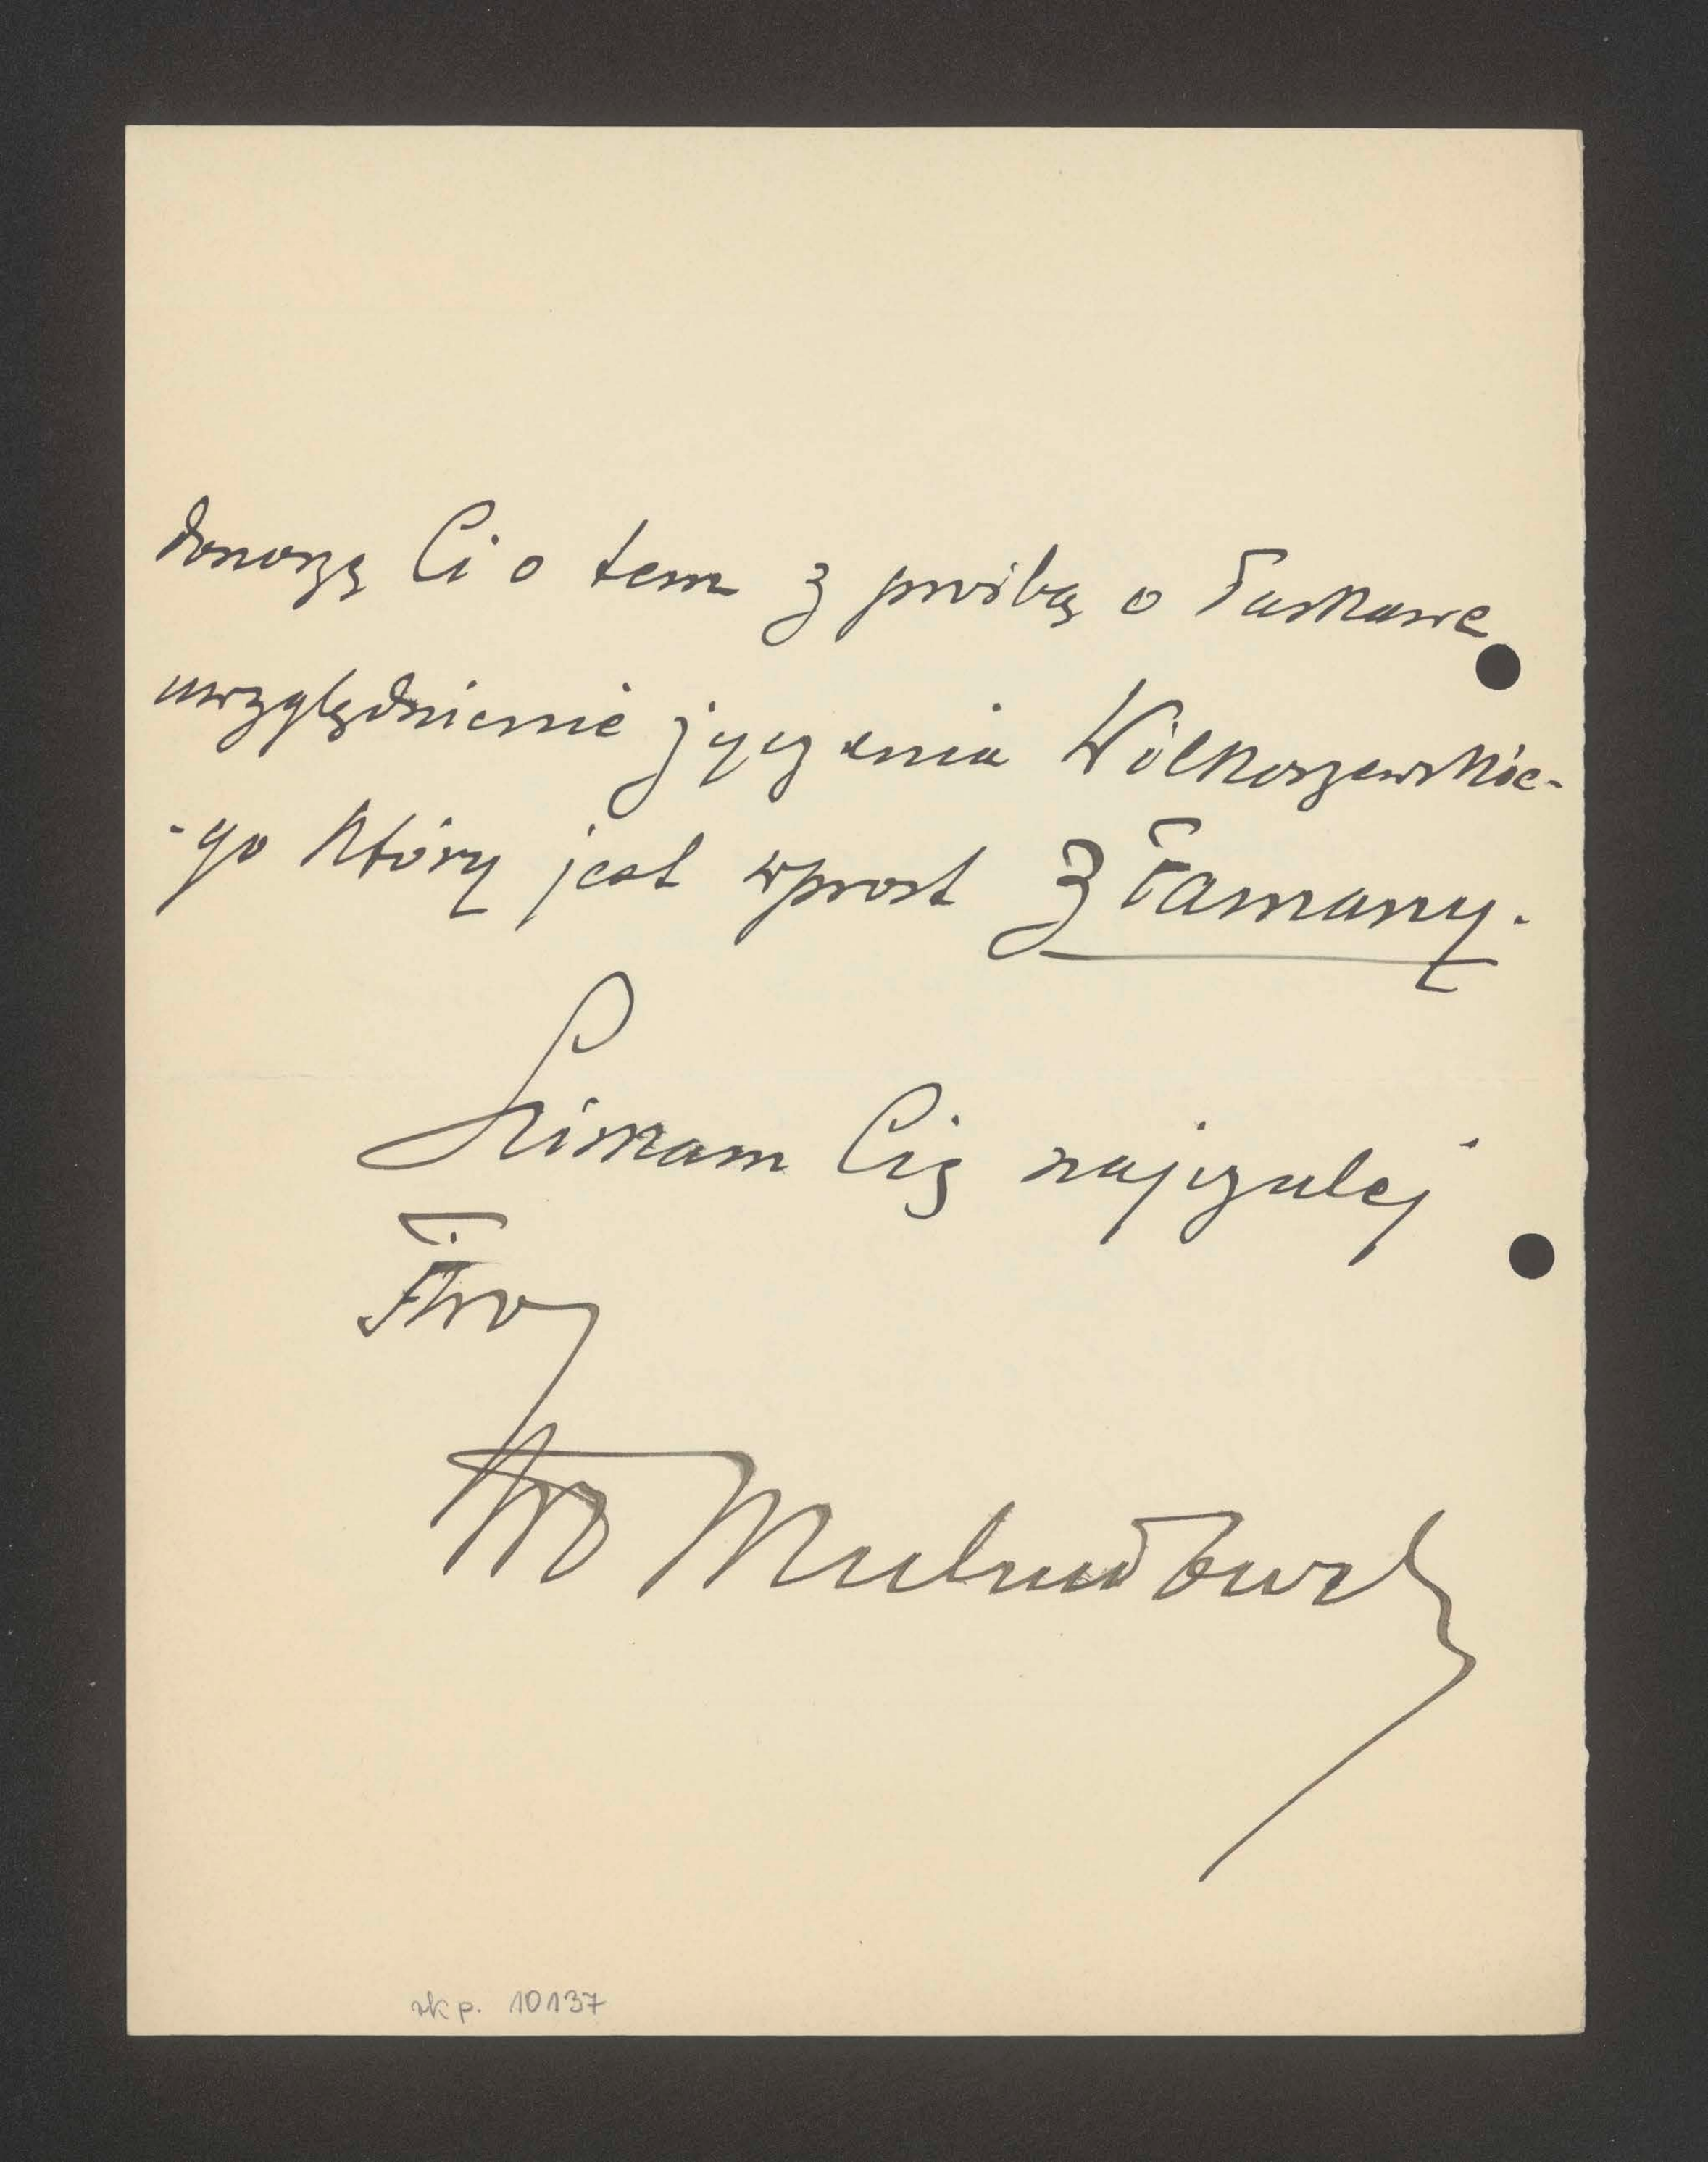 donoszę Ci o tem z prośbą o łaskawe
uwzględnienie życzenia Wilkoszewskie-
-go który jest wprost złamany.
Ściskam Cię najczulej
Twoj
rkp. 10137